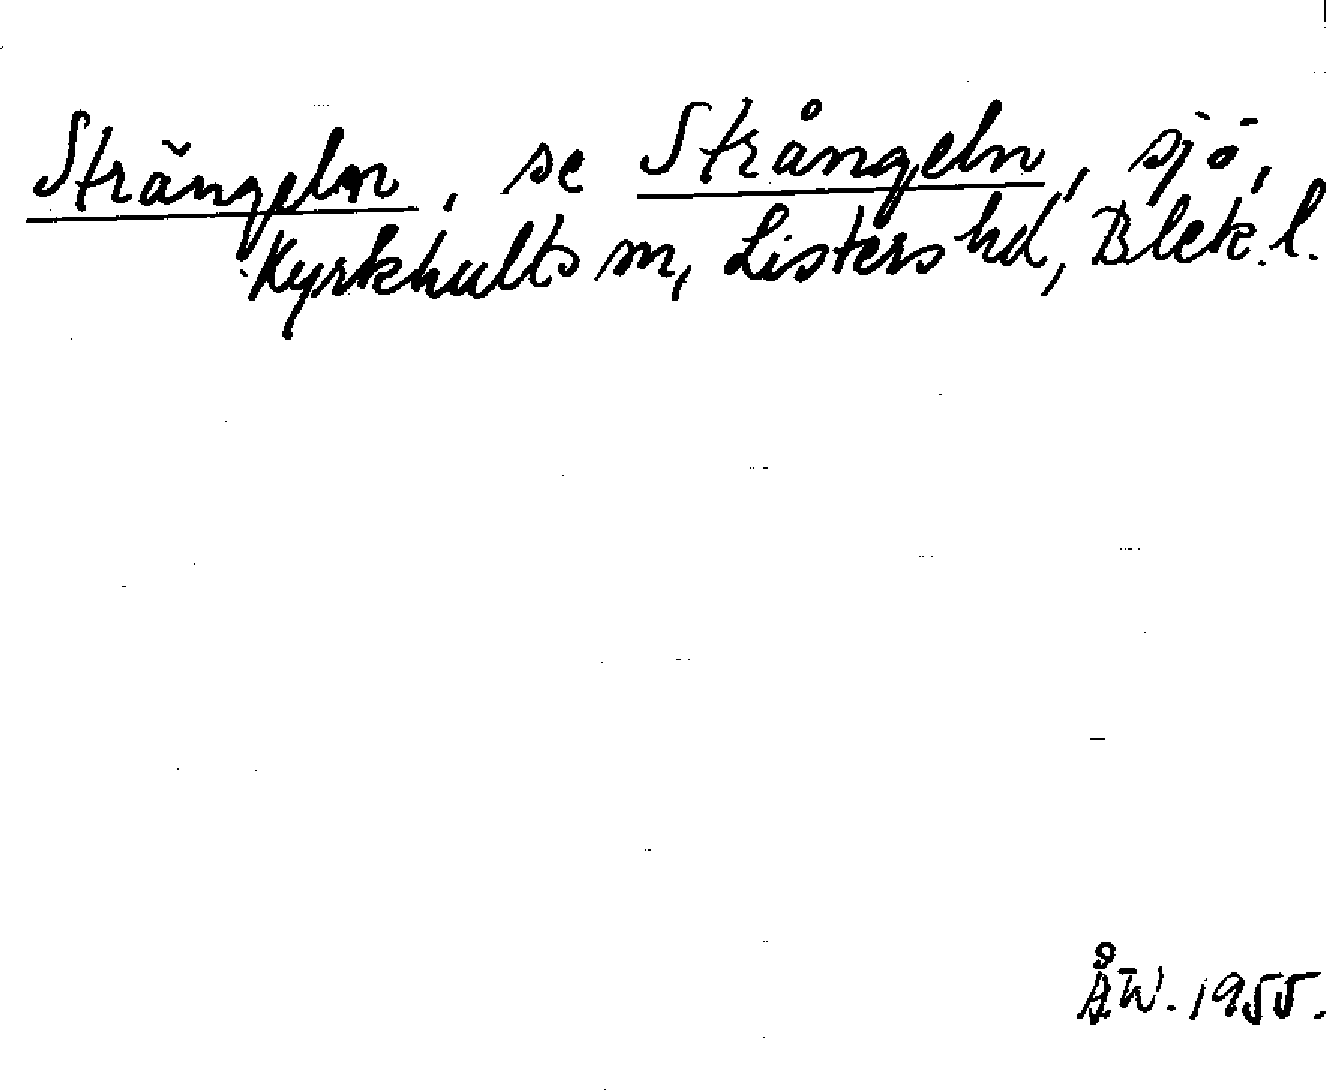 Strängeln, se Strångeln, sjö,
Kyrkhults sn, Listers hd, Blek. l.
ÅW. 1955.